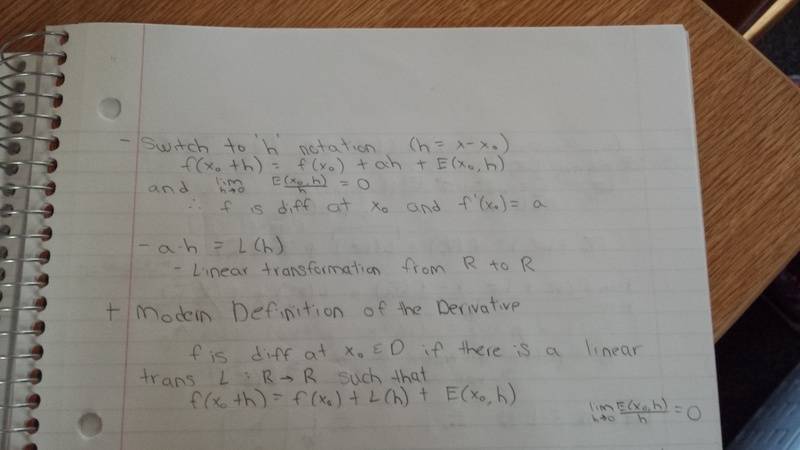 - Switch to 'h' notation (h = x - x₀)
f(x₀ + h) = f(x₀) + ah + E(x₀, h)
and lim h→0 E(x₀, h)/h = 0
∴ f is diff at x₀ and f'(x₀) = a
- a·h = L(h)
- Linear transformation from R to R
+ Modern Definition of the Derivative
f is diff at x₀ ε D if there is a linear
trans L : R → R such that
f(x₀ + h) = f(x₀) + L(h) + E(x₀, h)
lim h→0 E(x₀, h)/h = 0